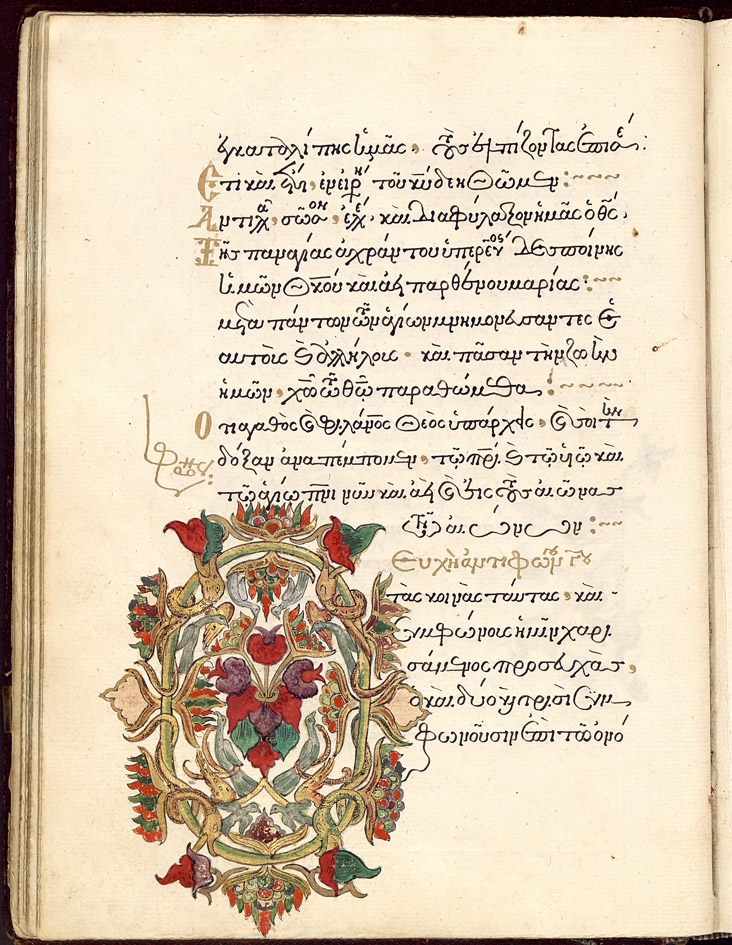 ἐγκαταλίπης ἡμᾶς, τοὺς ἐλπίζοντας ἐπὶ σέ:
Ἔτι καὶ ἔτι, ἐν εἰρή τοῦ κυ δεηθῶμεν:~~~
Ἀντιλα, σῶσον, ἐλέ, καὶ διαφύλαξον ἡμᾶς ὁ θς,
Τῆς παναγίας ἀχράντου ὑπερευ δεσποίνης
ἡμῶν θκου καὶ ἀει παρθένου μαρίας:~~
μετὰ πάντων τῶν ἁγίων μνημονεύσαντες ἑ
αυτοὺς καὶ ἀλλήλους · καὶ πᾶσαν τὴν ζωὴν
ἡμῶν, χω τῶ θω παραθώμεθα:~~~~
Ὅτι ἀγαθὸς καὶ φιλάνος θεὸς ὑπάρχεις, καὶ σοὶ τὴν
δόξαν ἀναπέμπομεν, τῶ πρι καὶ τῶ υἱῶ καὶ
τῶ ἁγίω πνι νῦν καὶ ἀεὶ καὶ εἰς τοὺς αἰῶνας
τῶν αἰώνων:~~
Εὐχὴ ἀντιφώνου γου
τὰς κοινὰς ταύτας, καὶ
συμφώνους ἡμῖν χαρι
σάμενος προσευχὰς,
ὁ καὶ δύο ἢ τρισὶ συμ
φωνοῦσιν ἐπὶ τῶ ὀνό